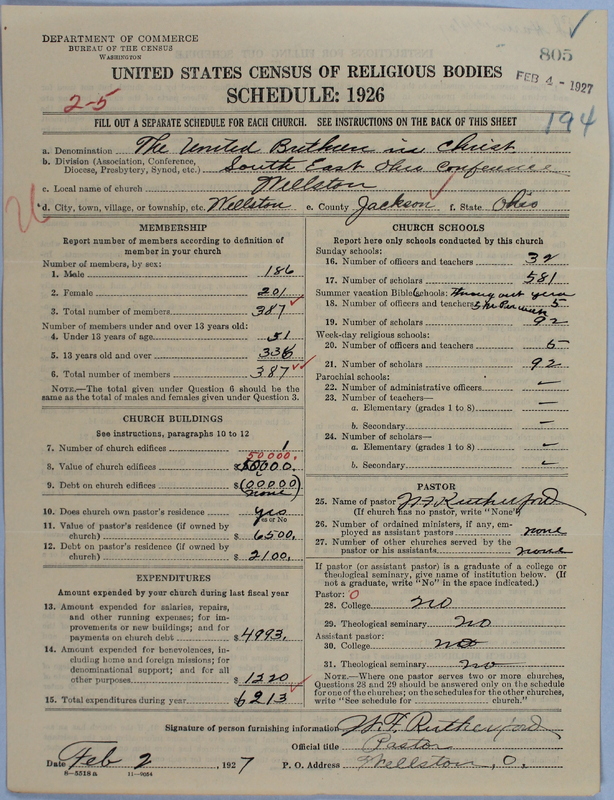 DEPARTMENT OF COMMERCE
BUREAU OF THE CENSUS
WASHINGTON
805
FEB 4 - 1927
UNITED STATES CENSUS OF RELIGIOUS BODIES
SCHEDULE: 1926
2-5
194
FILL OUT A SEPARATE SCHEDULE FOR EACH CHURCH. SEE INSTRUCTIONS ON THE BACK OF THIS SHEET
a. Denomination The United Brethren in Christ
b. Division (Association, Conference, Diocese, Presbytery, Synod, etc.) South East Ohio Conference
c. Local name of church Wellston
d. City, town, village, or township, etc. Wellston e. County Jackson f. State Ohio
MEMBERSHIP
Report number of members according to definition of
member in your church
Number of members, by sex:
1. Male 186
2. Female 201
3. Total number of members 387
Number of members under and over 13 years old:
4. Under 13 years of age 51
5. 13 years old and over 336
6. Total number of members 387
NOTE.—The total given under Question 6 should be the
same as the total of males and females given under Question 3.
CHURCH BUILDINGS
See instructions, paragraphs 10 to 12
7. Number of church edifices 1
50000.
8. Value of church edifices $50000.
9. Debt on church edifices $(00000)
none
10. Does church own pastor's residence yes
Yes or No
11. Value of pastor's residence (if owned by
church) $ 6500.
12. Debt on pastor's residence (if owned by
church) $ 2100.
EXPENDITURES
Amount expended by your church during last fiscal year
13. Amount expended for salaries, repairs,
and other running expenses; for im-
provements or new buildings; and for
payments on church debt $ 4993.
14. Amount expended for benevolences, in-
cluding home and foreign missions; for
denominational support; and for all
other purposes $ 1220
15. Total expenditures during year $ 6213
CHURCH SCHOOLS
Report here only schools conducted by this church
Sunday schools:
16. Number of officers and teachers 32
17. Number of scholars 581
Summer vacation Bible schools: Through out year
18. Number of officers and teachers 5
19. Number of scholars 92
Week-day religious schools:
20. Number of officers and teachers 5
21. Number of scholars 92
Parochial schools:
22. Number of administrative officers —
23. Number of teachers—
a. Elementary (grades 1 to 8) —
b. Secondary —
24. Number of scholars—
a. Elementary (grades 1 to 8) —
b. Secondary —
PASTOR
25. Name of pastor W.F. Rutherford
(If church has no pastor, write "None")
26. Number of ordained ministers, if any, em-
ployed as assistant pastors none
27. Number of other churches served by the
pastor or his assistants none
If pastor (or assistant pastor) is a graduate of a college or
theological seminary, give name of institution below. (If
not a graduate, write "No" in the space indicated.)
Pastor: 0
28. College no
29. Theological seminary no
Assistant pastor:
30. College no
31. Theological seminary no
NOTE.—Where one pastor serves two or more churches,
Questions 28 and 29 should be answered only on the schedule
for one of the churches; on the schedules for the other churches,
write "See schedule for church."
Signature of person furnishing information W.F. Rutherford
Official title Pastor
Date Feb 2, 1927 P. O. Address Wellston, O.
8-5518a 11-9054